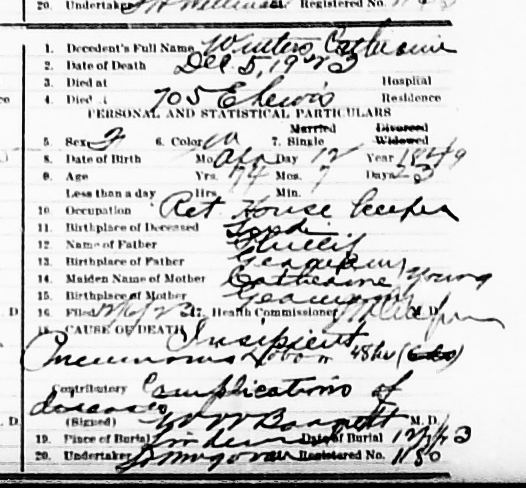 20. Undertaker Registered No.
1. Decedent's Full Name Winters, Catharine
2. Date of Death Dec 5, 1923
3. Died at Hospital
4. Died at 705 E Lewis Residence
PERSONAL AND STATISTICAL PARTICULARS
Married Divorced
5. Sex F 6. Color W 7. Single Widowed
8. Date of Birth Mo. Day 12 Year 1849
9. Age Yrs. 74 Mos. 7 Days 23
Less than a day Hrs. Min.
10. Occupation Ret House Keeper
11. Birthplace of Deceased
12. Name of Father Phillip
13. Birthplace of Father Germany
14. Maiden Name of Mother Catharine Young
15. Birthplace of Mother Germany
D. 16. Filed 17. Health Commissioner M. D.
18. CAUSE OF DEATH Insipient
Pneumonia Lobar 48 hr
Contributory Complications of
diseases
D. (Signed) W W Barnett M. D.
19. Place of Burial Lindenwood Date of Burial 12/7/23
20. Undertaker Registered No. 1180